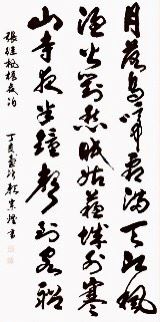 月落烏啼霜滿天江楓
漁火對愁眠姑蘇城外寒
山寺夜半鐘聲到客船
張繼楓橋夜泊
書